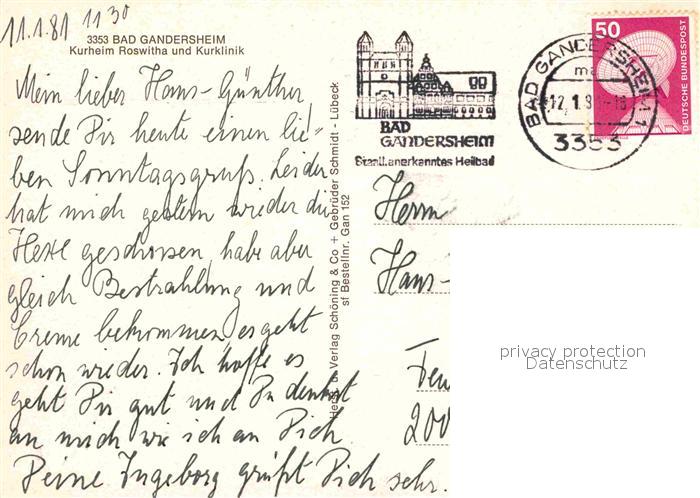 11.1.81 11 30
3353 BAD GANDERSHEIM
Kurheim Roswitha und Kurklinik
Mein lieber Hans-Günther,
sende Dir heute einen lie-
ben Sonntagsgruß. Leider
hat mich gestern wieder die
Hexe geschossen, habe aber
gleich Bestrahlung und
Creme bekommen es geht
schon wieder. Ich hoffe es
geht Dir gut und Du denkst
an mich wie ich an Dich.
Deine Ingeborg grüßt Dich sehr.
Verlag Schöning & Co + Gebrüder Schmidt - Lübeck
sf Bestellnr. Gan 152
BAD
GANDERSHEIM
Staatl. anerkanntes Heilbad
BAD GANDERSHEIM 1
12.1.8
3353
50
DEUTSCHE BUNDESPOST
Herrn
Hans-
200
privacy protection
Datenschutz